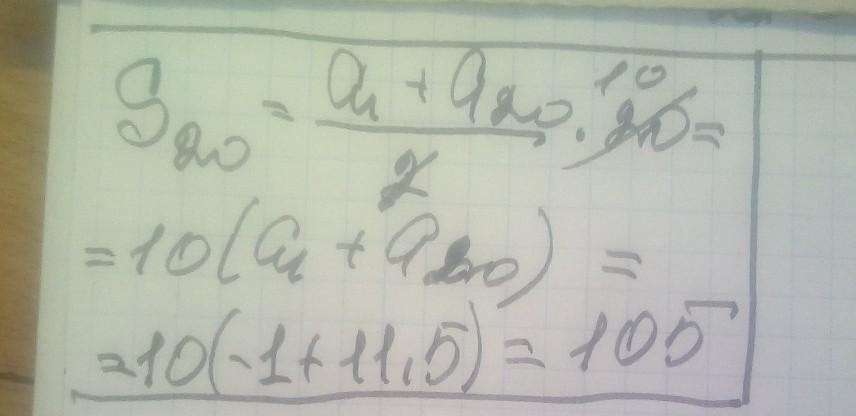 S₂₀ = (a₁ + a₂₀)/2 · 20 10 =
= 10(a₁ + a₂₀) =
= 10(-1 + 11,5) = 105